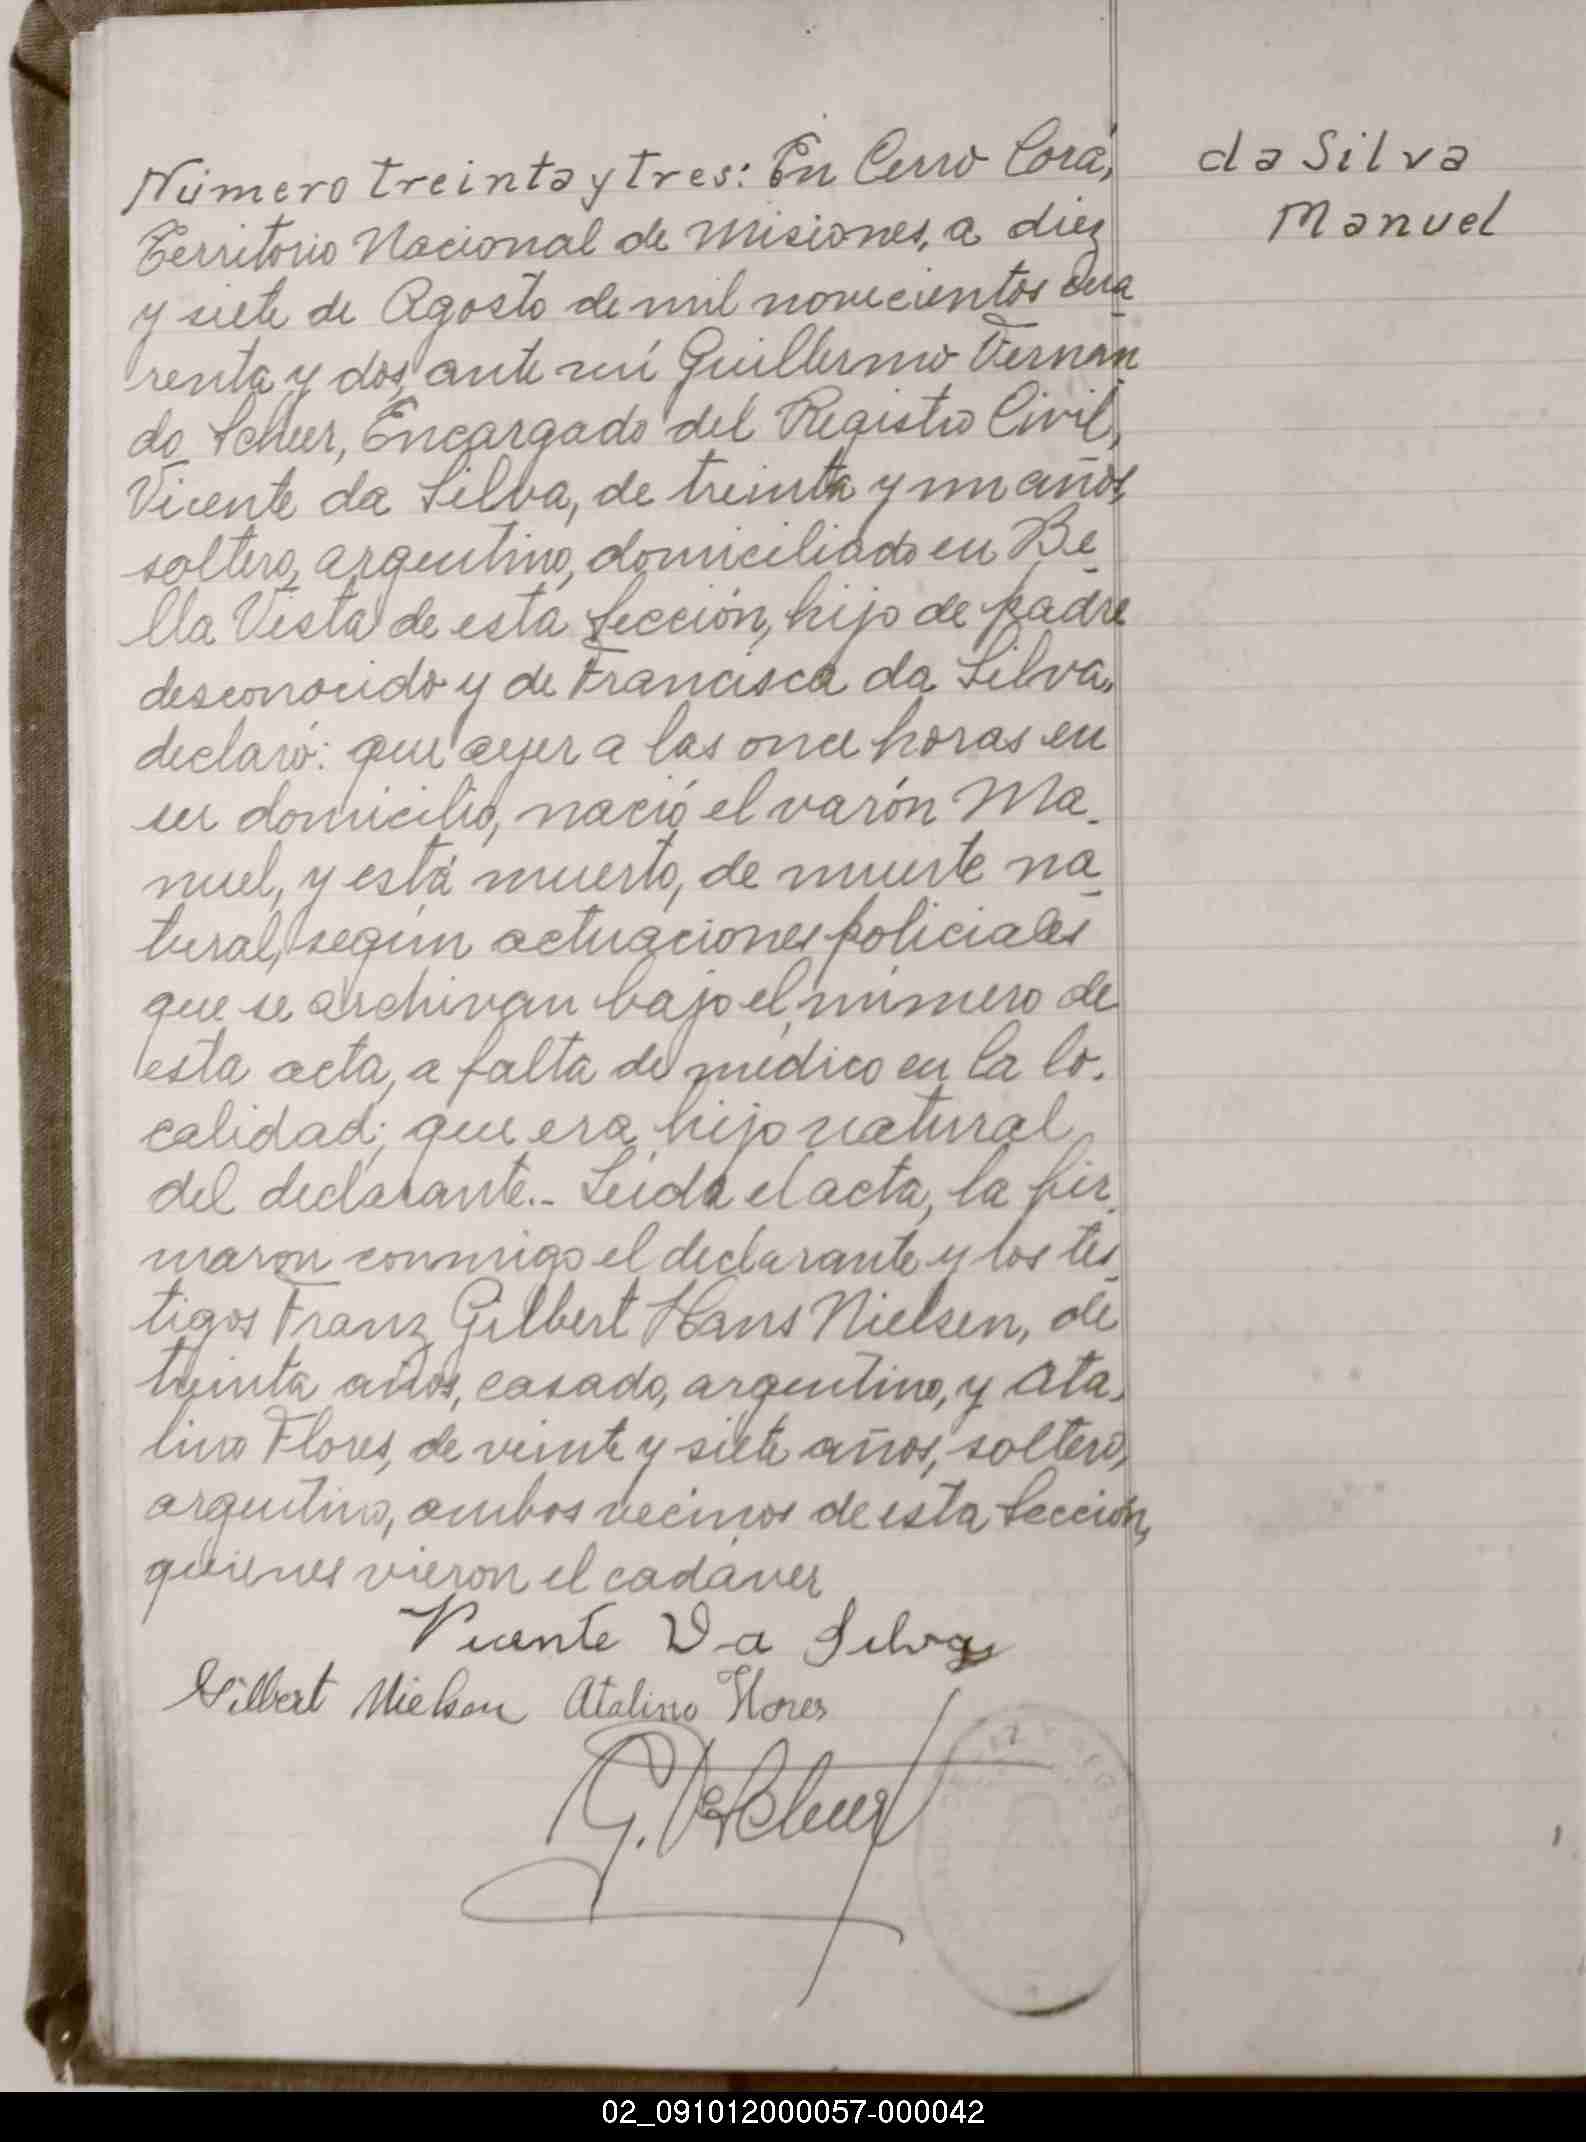 Número treinta y tres: En Cerro Corá,
da Silva
Manuel
Territorio Nacional de Misiones, a diez
y siete de Agosto de mil novecientos cua
renta y dos, ante mí Guillermo Fernan
do Scheer, Encargado del Registro Civil,
Vicente da Silva, de treinta y un años,
soltero, argentino, domiciliado en Be
lla Vista de esta Sección, hijo de padre
desconocido y de Francisca da Silva,,
declaró: que ayer a las once horas en
su domicilio, nació el varón Ma-
nuel, y está muerto, de muerte na
tural, según actuaciones policiales
que se archivan bajo el número de
esta acta, a falta de médico en la lo-
calidad; que era hijo natural
del declarante.- Leida el acta, la fir
maron conmigo el declarante y los tes
tigos Franz Gilbert Hans Nielsen, de
treinta años, casado, argentino, y Ata-
lino Flores, de veinte y siete años, soltero,
argentino, ambos vecinos de esta Sección,
quienes vieron el cadáver
Vicente Da Silva
Gilbert Nielsen Atalino Flores
02_091012000057-000042